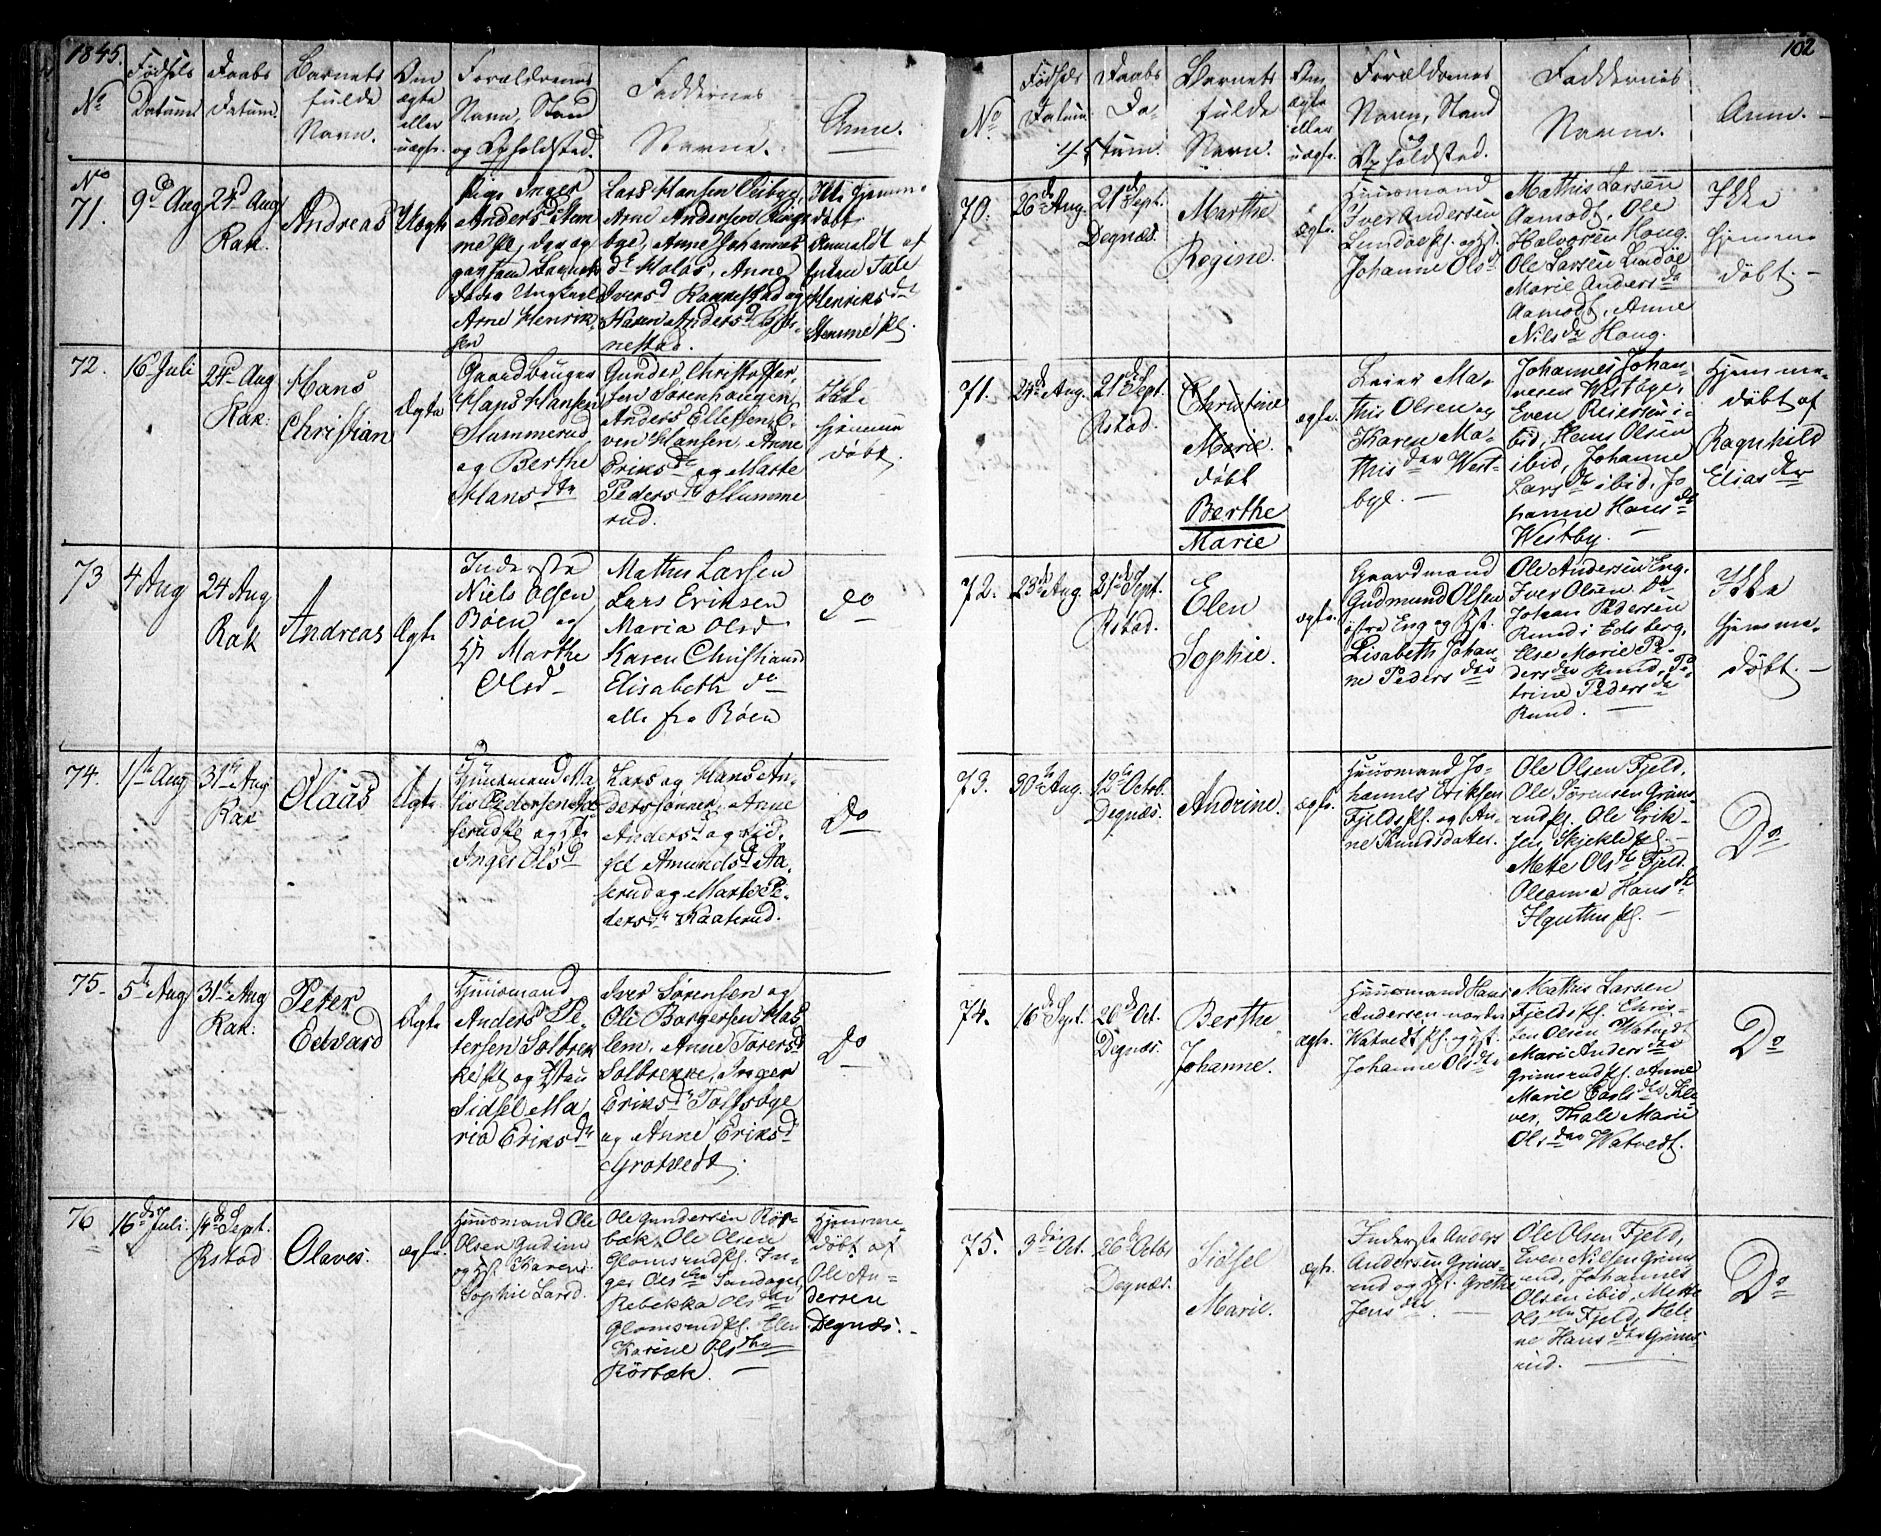 1845.
No
Fødsels
Datum
Daabs
Datum.
Barnets
fulde
Navn.
Om
ægte
eller
uægte.
Forældrenes
Navn, Stand
og Opholdsted.
Faddernes
Navne.
Anm.
No
71.
9d Aug
24d Aug
Rak.
Andreas
Uægte
Pige Inger
Andersd
Arne Henrik-
sen
Lars Hansen
Arne Andersen
bye, Anne Johannes
dr Holøs, Anne
Iversd Rannestad og
Karen Andersd
nestad.
døbt
Henriksdr
72.
16 Juli
24d Aug
Rak:
Hans
Christian
Ægte
Gaardbruger
Hans Hansen
Mammerud
og Berthe
Hansdtr
Gunder Christoffer-
sen Sørenhougen
Anders Ellefsen E-
ven Hansen, Anne
Eriksdr og Marte
Pedersdr Mumme
rud.
Ikke
hjemme
døbt.
73
4 Aug
24 Aug
Rak
Andreas
Ægte
Inderste
Niels Olsen
Bøen og
H Marthe
Olsd
Mathis Larsen
Lars Eriksen
Maria Olsd
Karen Christiansd
Elisabeth do
alle fra Bøen
do
74.
17de Aug
31te Aug
Rak
Olaus
Ægte
Huusmand Ma
Inger Olsd
Lars og Hans An-
derssønner, Anne
Andersd og Sid-
sel Amundsd Aa-
serud og Marte Pe-
dersdr Kaaterud.
Do
75.
5te Aug
31te Aug
Rak.
Peter
Edvard
Ægte
Huusmand
Anders Pe-
tersen Solbrek
ke og Hstau
Sidsel Ma
ria Eriksdr
Iver Sørensen og
Ole Borgersen Has
lem, Anne Torersd
Solbrekke, Inger
Eriksdr Toffsbye
og Anne Eriksdr
Grotvedt.
Do
76
16de Juli.
14de Sept.
Rstad
Olaves.
ægte.
Huusmand Ole
Olsen Gudim
og Hst. Karen
Sophie Larsd.
Ole Gundersen Rør-
bæk, Ole Olsen
Glomsrud. In-
ger Olsdtr Sandager,
Rebekka Olsdtr
Glomsrud. Elen
Karine Olsdtr
Rørbæk.
Hjemme-
døbt af
Ole An-
dersen
Degnæs.
102
No
Fødsels
Datum
45
Daabs
Da-
tum.
Barnets
fulde
Navn.
Om
ægte
eller
uægte.
Forældrenes
Navn, Stand
og
Opholdsted.
Faddernes
Navne.
Anm.
70.
26de Aug.
21de Sept.
Degnæs.
Marthe
Regine.
ægte.
Huusmand
Iver Andersen
Lundøe og Hst.
Johanne Olsd
Mathis Larsen
Aamodt, Ole
Halvorsen Houg.
Ole Larsen Lundøe
Marie Andersdr
Aamodt, Anne
Nilsdr Houg.
Ikke
hjemme
døbt.
71.
24de Aug.
21de Sept.
Rstad.
Christine
Marie.
døbt
Berthe
Marie
ægte.
Leier Ma-
this Olsen og
Karen Ma-
thisdtr West-
bye.
Johannes Johan-
nesen Westbye,
Even Reiersen i-
bid, Hans Olsen
ibid, Johanne
Larsdr ibid, Jo
hanne Hansdr
Westby.
Hjemme-
døbt af
Ragnhild
Eliasdtr
72.
23de Aug.
21de Sept.
Rstad.
Elen
Sophie.
ægte.
Gaardmand
Gudmund Olsen
østre Eng og Hst.
Lisabeth Johan-
ne Pedersdtr
Ole Andersen Eng.
Iver Olsen do
Johan Pedersen
Rund i Eidsberg,
Else Marie Pe-
dersdtr Rund, Pe
trine Pedersdr
Rund.
Ikke
hjemme-
døbt.
73.
30te Aug.
12te Octob.
Degnæs.
Andrine.
ægte.
Huusmand Jo-
hannes Eriksen
Fjeld og An-
ne Knudsdatter.
Ole Olsen Fjeld,
Ole Sørensen Grims-
rud. Ole Erik-
sen Skjekle
Mette Olsdtr Fjeld.
Oleanna Hansdr
Do
74.
16de Sept.
20de Oct.
Degnæs.
Berthe
Johanne.
ægte.
Huusmand Hans
Andersen nordre
Watvedt og Hst.
Johanne Olsdtr
Mathis Larsen
Fjeld. Chris-
ten Olsen Watvedt
Mari Andersdtr
Grimsrud. Anne
Marie Carlsdtr Kle
ver, Thale Marie
Olsdtr Watvedt.
Do
75.
3die Oct.
26de Octbr
Degnæs.
Sidsel
Marie.
ægte.
Inderste Anders
Andersen Grims-
rud og Hst. Grethe
Jensdtr.
Ole Olsen Fjeld,
Even Nilsen Grims
rud, Johannes
Olsen ibid, Mette
Olsdtr Fjeld, Hel-
ne Hansdtr Grims-
rud.
Do